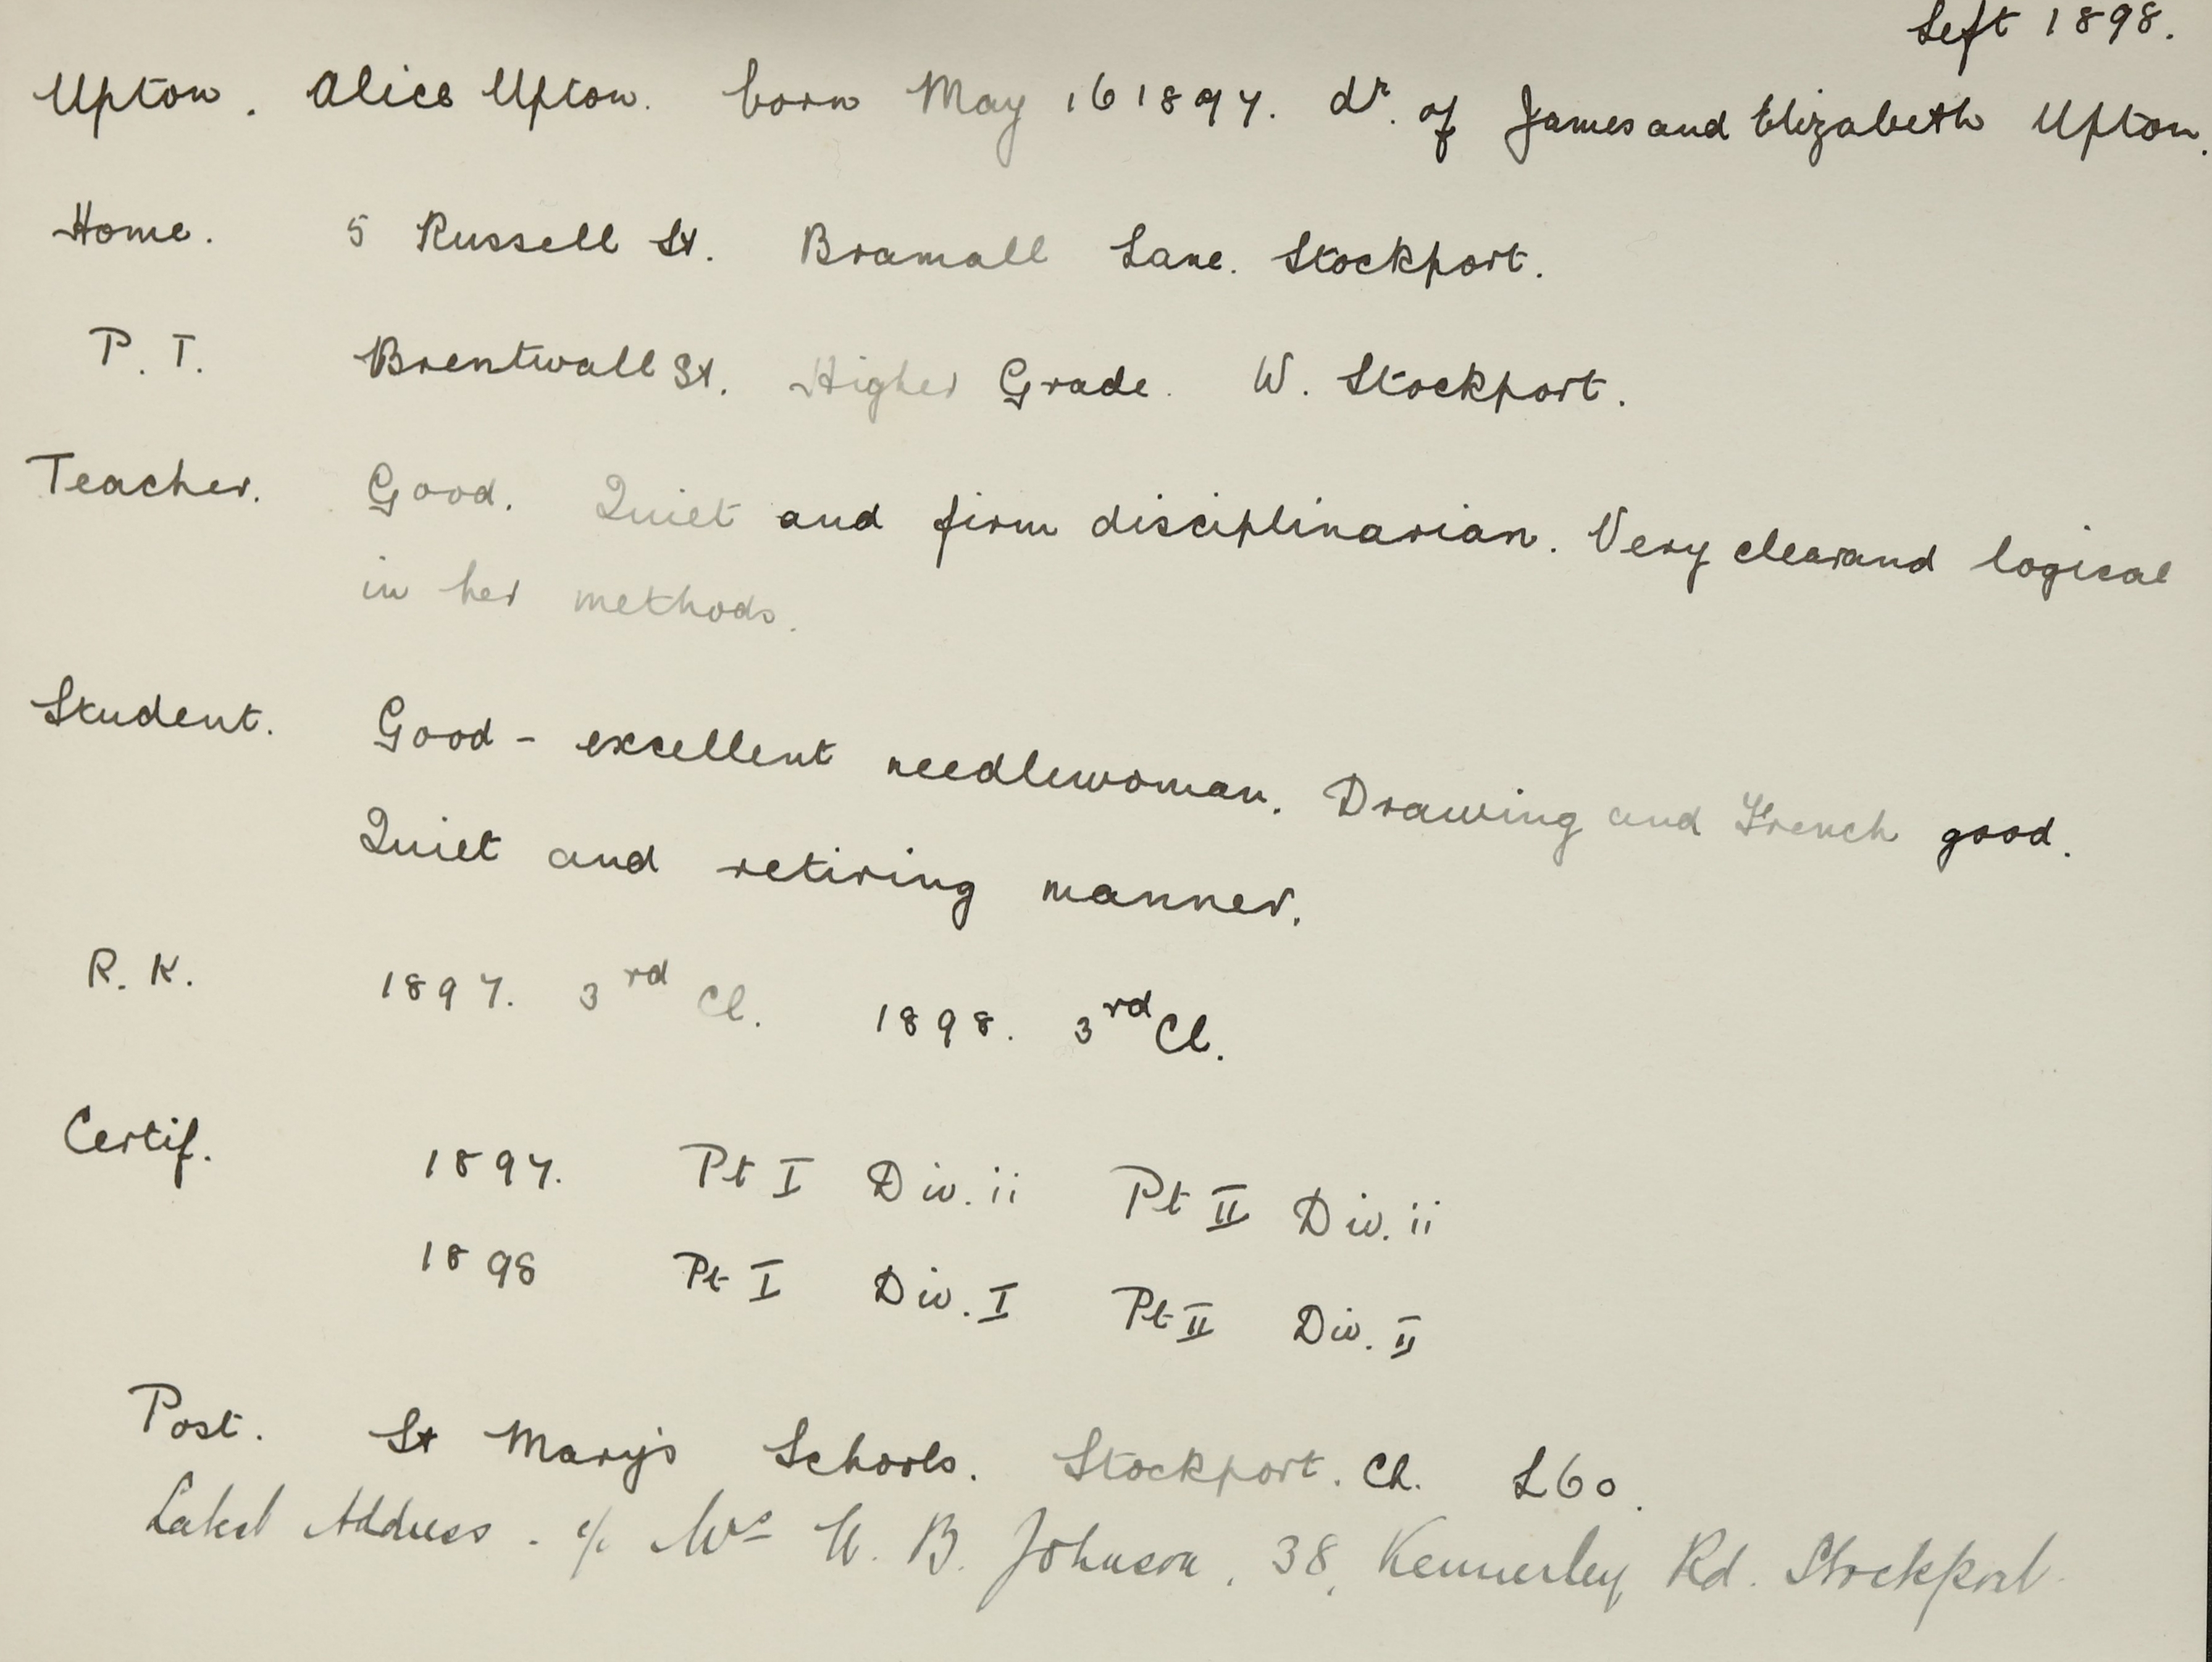 Left 1898.
Upton. Alice Upton. born May 16 1897. dr. of James and Elizabeth Upton.
Home. 5 Russell St. Bramall Lane. Stockport.
P. T. Brentwall St. Higher Grade. W. Stockport.
Teacher. Good. Quiet and firm disciplinarian. Very clear and logical
in her methods.
Student. Good - excellent needlewoman. Drawing and French good.
Quiet and retiring manner.
R. K. 1897. 3rd Cl. 1898. 3rd Cl.
Certif. 1897. Pt I Div. ii Pt II Div. ii
1898 Pt I Div. I Pt II Div. II
Post. St Mary's Schools. Stockport. Ch. £60.
Latest Address. c/o Mrs W. B. Johnson, 38, Kennerley Rd. Stockport.